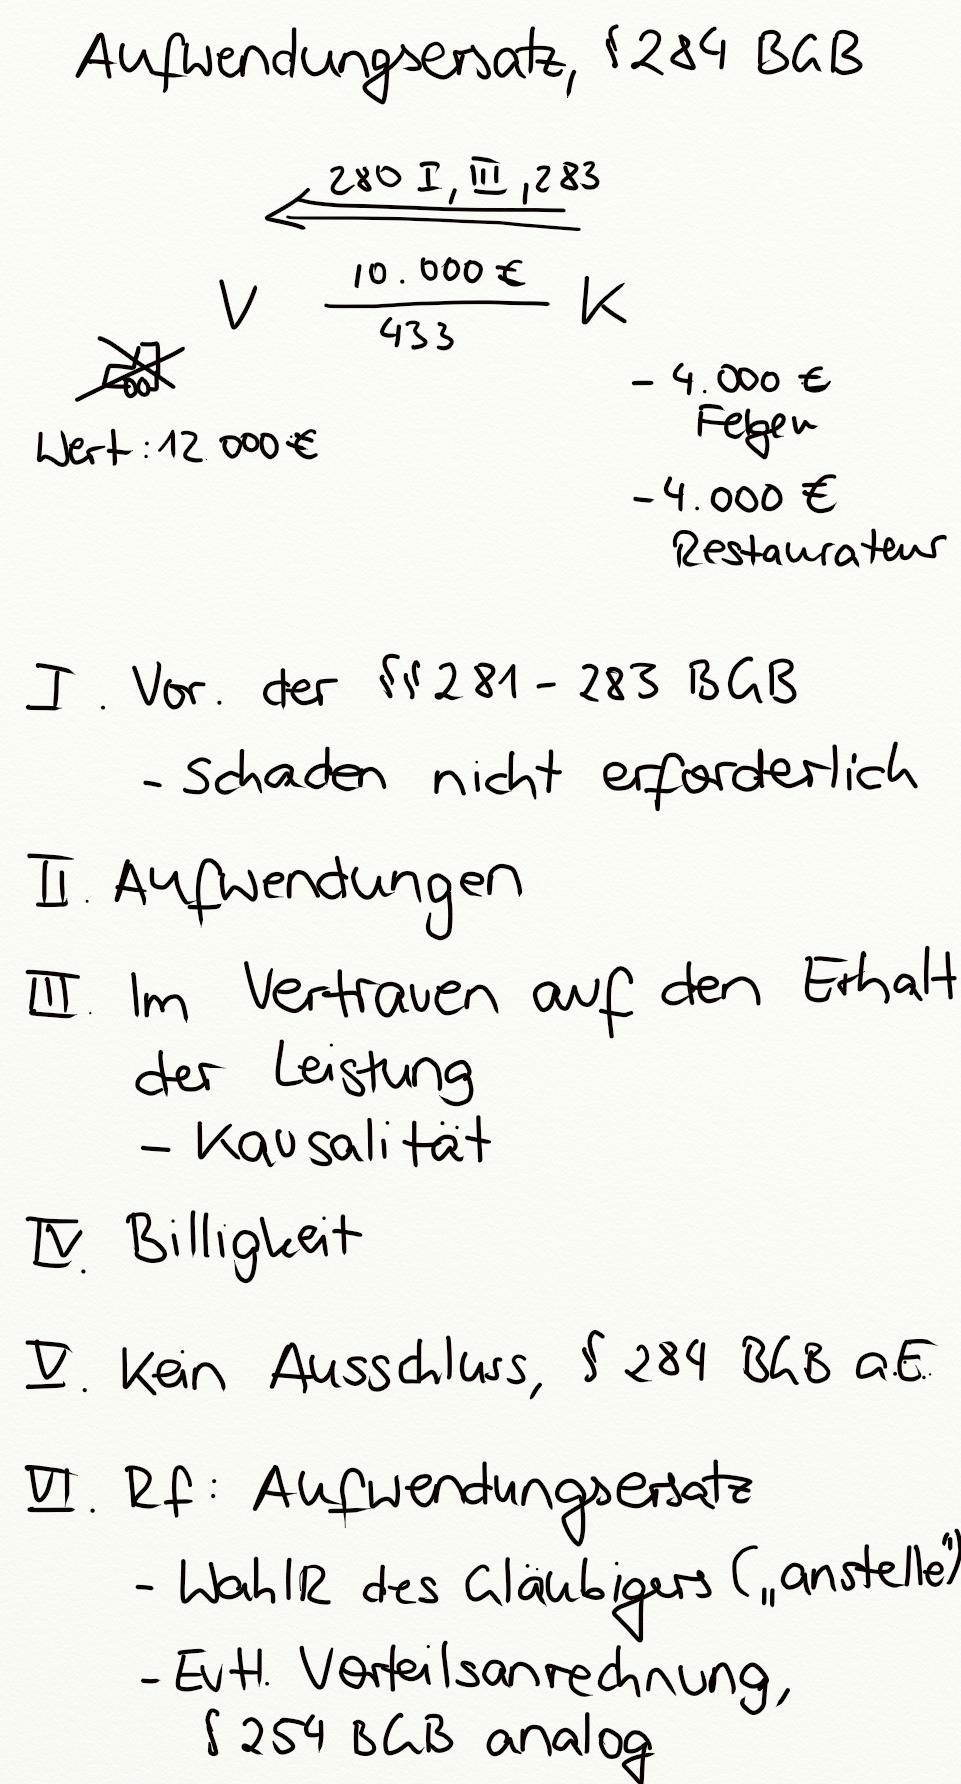 Aufwendungsersatz, § 284 BGB
280 I, III, 283
V 10.000 € K
433
- 4.000 €
Felgen
Wert: 12.000 €
- 4.000 €
Restaurateur
I. Vor. der §§ 281 - 283 BGB
- Schaden nicht erforderlich
II. Aufwendungen
III. Im Vertrauen auf den Erhalt
der Leistung
- Kausalität
IV. Billigkeit
V. Kein Ausschluss, § 284 BGB a.E.
VI. Rf: Aufwendungsersatz
- WahlR des Gläubigers („anstelle")
- Evtl. Vorteilsanrechnung,
§ 254 BGB analog